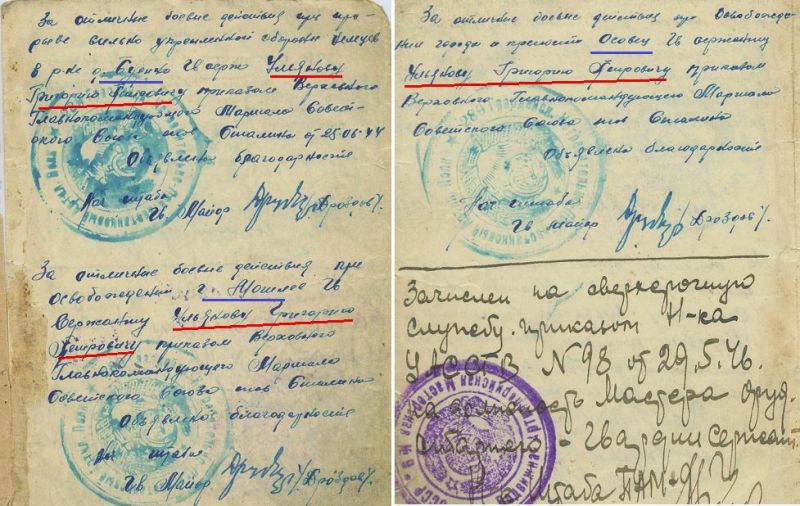 За отличные боевые действия при про-
рыве сильно укрепленной обороны немцев
в р-не д. Гв серж Ульянову
Григорию Петровичу приказом Верховного
Главнокомандующего Маршала Совет-
ского Союза тов Сталина от 25.06.44
Объявлена благодарность
Нач штаба
Гв. Майор /Дроздов/.
За отличные боевые действия при
освобождении г. Гв
Сержанту Ульянову Григорию
Петровичу приказом Верховного
Главнокомандующего Маршала
Советского Союза тов Сталина
Объявлена благодарность
Нач штаба
Гв Майор /Дроздов/.
За отличные боевые действия при Освобожде-
нии города и крепости Осовец Гв сержанту
Ульянову Григорию Петровичу приказом
Верховного Главнокомандующего Маршала
Советского Союза тов Сталина
Объявлена благодарность
Нач штаба
Гв майор /Дроздов/.
Зачислен на сверхсрочную
службу. приказом Н-ка
N 98 от 29.5.46.
на должность Мастера оруд.
- Гвардии Сержант.
штаба